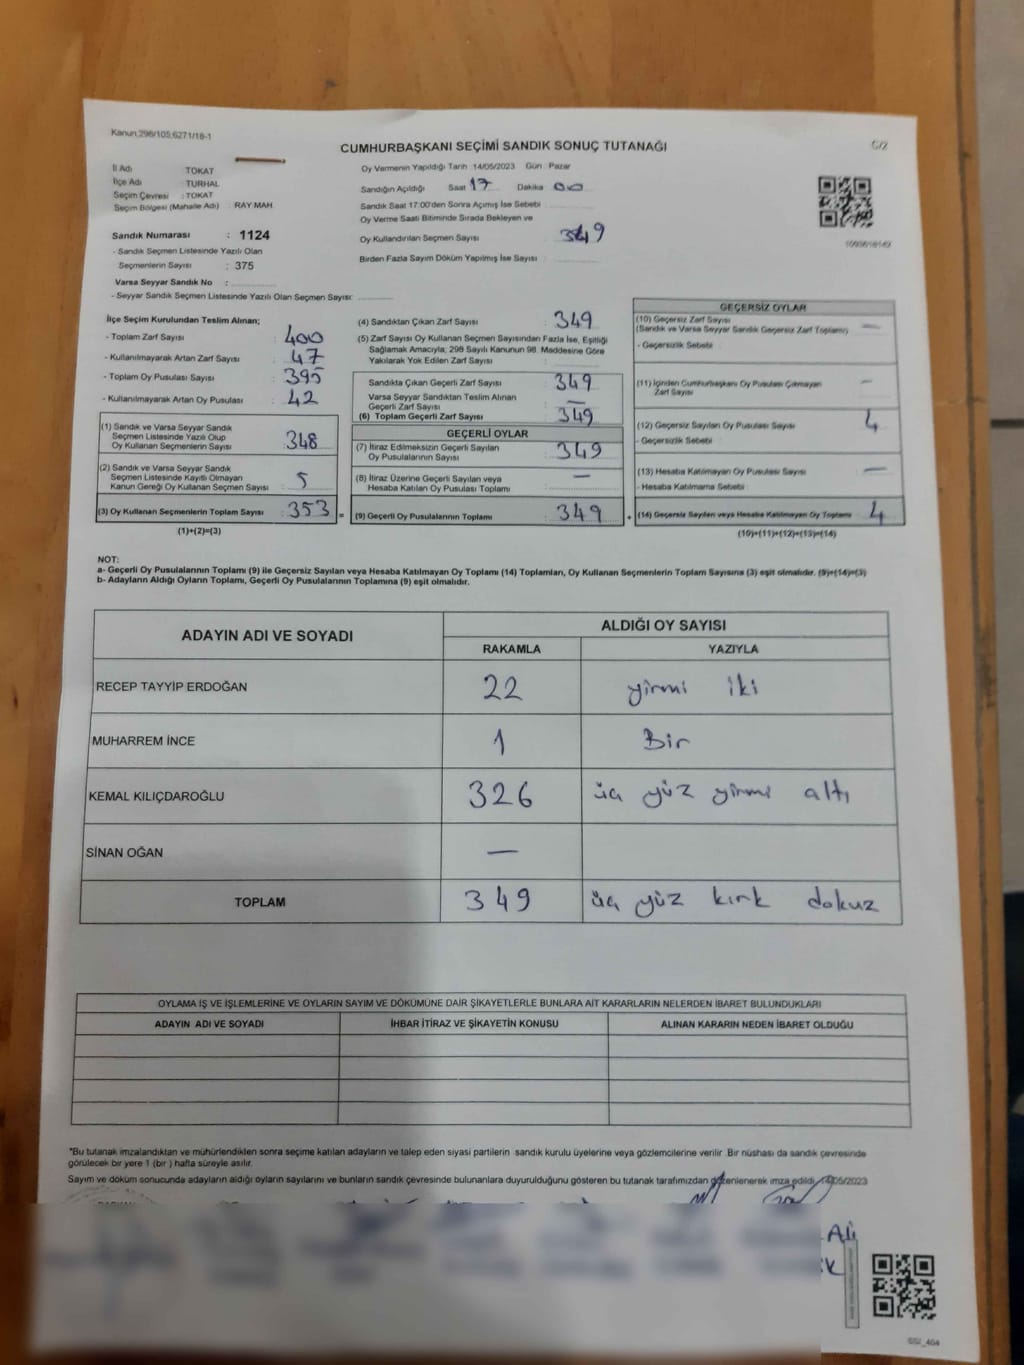 Kanun;298/105;6271/18-1
CUMHURBAŞKANI SEÇİMİ SANDIK SONUÇ TUTANAĞI
İl Adı TOKAT
İlçe Adı : TURHAL
Seçim Çevresi : TOKAT
Seçim Bölgesi (Mahalle Adı) : RAY MAH.
Sandık Numarası : 1124
- Sandık Seçmen Listesinde Yazılı Olan
Seçmenlerin Sayısı : 375
Varsa Seyyar Sandık No :
- Seyyar Sandık Seçmen Listesinde Yazılı Olan Seçmen Sayısı:
Oy Vermenin Yapıldığı Tarih 14/05/2023 Gün : Pazar
Sandığın Açıldığı Saat 17 Dakika 00
Sandık Saat 17:00'den Sonra Açımış İse Sebebi
Oy Verme Saati Bitiminde Sırada Bekleyen ve
Oy Kullandırılan Seçmen Sayısı 349
Birden Fazla Sayım Döküm Yapılmış İse Sayısı
İlçe Seçim Kurulundan Teslim Alınan;
- Toplam Zarf Sayısı : 400
- Kullanılmayarak Artan Zarf Sayısı : 47
- Toplam Oy Pusulası Sayısı : 395
- Kullanılmayarak Artan Oy Pusulası : 42
(1) Sandık ve Varsa Seyyar Sandık
Seçmen Listesinde Yazılı Olup
Oy Kullanan Seçmenlerin Sayısı : 348
(2) Sandık ve Varsa Seyyar Sandık
Seçmen Listesinde Kayıtlı Olmayan
Kanun Gereği Oy Kullanan Seçmen Sayısı : 5
(3) Oy Kullanan Seçmenlerin Toplam Sayısı : 353 =
(1)+(2)=(3)
(4) Sandıktan Çıkan Zarf Sayısı : 349
(5) Zarf Sayısı Oy Kullanan Seçmen Sayısından Fazla İse, Eşitliği
Sağlamak Amacıyla; 298 Sayılı Kanunun 98. Maddesine Göre
Yakılarak Yok Edilen Zarf Sayısı :
Sandıkta Çıkan Geçerli Zarf Sayısı : 349
Varsa Seyyar Sandıktan Teslim Alınan
Geçerli Zarf Sayısı : —
(6) Toplam Geçerli Zarf Sayısı : 349
GEÇERLİ OYLAR
(7) İtiraz Edilmeksizin Geçerli Sayılan
Oy Pusulalarının Sayısı : 349
(8) İtiraz Üzerine Geçerli Sayılan veya
Hesaba Katılan Oy Pusulası Toplamı : —
(9) Geçerli Oy Pusulalarının Toplamı : 349 +
GEÇERSİZ OYLAR
(10) Geçersiz Zarf Sayısı
(Sandık ve Varsa Seyyar Sandık Geçersiz Zarf Toplamı) —
- Geçersizlik Sebebi :
(11) İçinden Cumhurbaşkanı Oy Pusulası Çıkmayan
Zarf Sayısı —
(12) Geçersiz Sayılan Oy Pusulası Sayısı 4
- Geçersizlik Sebebi
(13) Hesaba Katılmayan Oy Pusulası Sayısı —
- Hesaba Katılmama Sebebi :
(14) Geçersiz Sayılan veya Hesaba Katılmayan Oy Toplamı 4
(10)+(11)+(12)+(13)=(14)
NOT:
a- Geçerli Oy Pusulalarının Toplamı (9) ile Geçersiz Sayılan veya Hesaba Katılmayan Oy Toplamı (14) Toplamları, Oy Kullanan Seçmenlerin Toplam Sayısına (3) eşit olmalıdır. (9)+(14)=(3)
b- Adayların Aldığı Oyların Toplamı, Geçerli Oy Pusulalarının Toplamına (9) eşit olmalıdır.
ADAYIN ADI VE SOYADI ALDIĞI OY SAYISI
RAKAMLA YAZIYLA
RECEP TAYYİP ERDOĞAN 22 yirmi iki
MUHARREM İNCE 1 Bir
KEMAL KILIÇDAROĞLU 326 üç yüz yirmi altı
SİNAN OĞAN —
TOPLAM 349 üç yüz kırk dokuz
OYLAMA İŞ VE İŞLEMLERİNE VE OYLARIN SAYIM VE DÖKÜMÜNE DAİR ŞİKAYETLERLE BUNLARA AİT KARARLARIN NELERDEN İBARET BULUNDUKLARI
ADAYIN ADI VE SOYADI İHBAR İTİRAZ VE ŞİKAYETİN KONUSU ALINAN KARARIN NEDEN İBARET OLDUĞU
*Bu tutanak imzalandıktan ve mühürlendikten sonra seçime katılan adayların ve talep eden siyasi partilerin sandık kurulu üyelerine veya gözlemcilerine verilir. Bir nüshası da sandık çevresinde
görülecek bir yere 1 (bir ) hafta süreyle asılır.
Sayım ve döküm sonucunda adayların aldığı oyların sayılarını ve bunların sandık çevresinde bulunanlara duyurulduğunu gösteren bu tutanak tarafımızdan düzenlenerek imza edildi. 14/05/2023
Ali